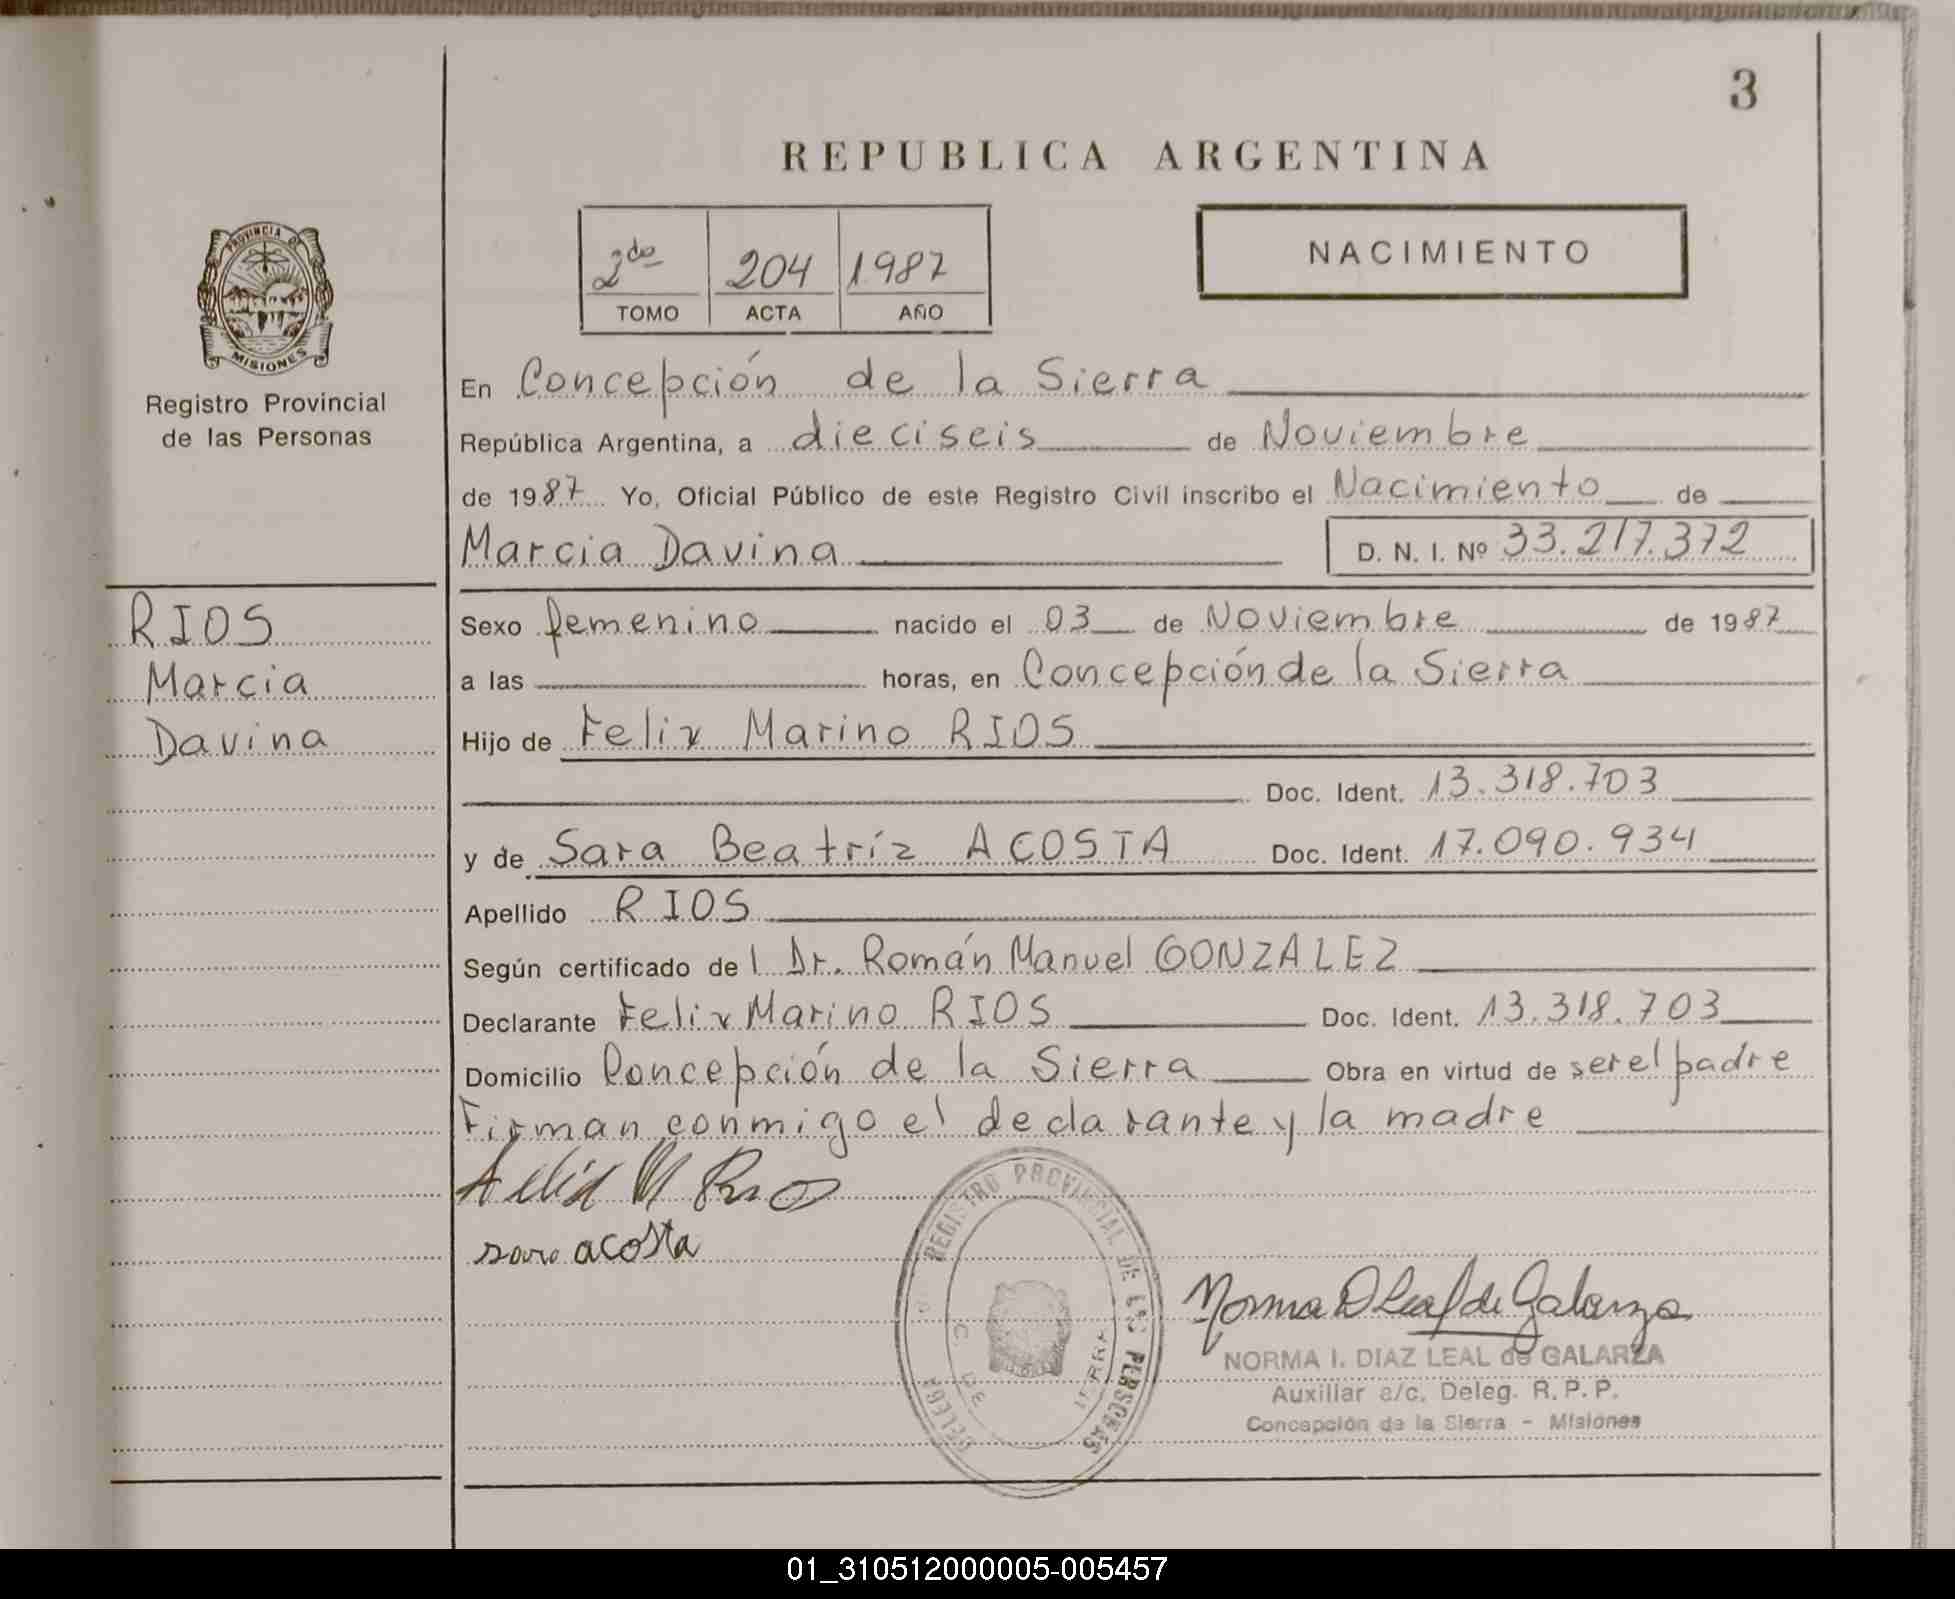 3
REPUBLICA ARGENTINA
2do 204 1987
TOMO ACTA AÑO
NACIMIENTO
PROVINCIA DE
MISIONES
Registro Provincial
de las Personas
RIOS
Marcia
Davina
En Concepción de la Sierra
República Argentina, a dieciseis de Noviembre
de 1987 Yo, Oficial Público de este Registro Civil inscribo el Nacimiento de
Marcia Davina D. N. I. Nº 33.217.372
Sexo femenino nacido el 03 de Noviembre de 1987
a las horas, en Concepción de la Sierra
Hijo de Felix Marino RIOS
Doc. Ident. 13.318.703
y de Sara Beatríz ACOSTA Doc. Ident. 17.090.934
Apellido RIOS
Según certificado del Dr. Román Manuel GONZALEZ
Declarante Felix Marino RIOS Doc. Ident. 13.318.703
Domicilio Concepción de la Sierra Obra en virtud de ser el padre
Firman conmigo el declarante y la madre
Felix M Rios
sara acosta
REGISTRO PROVINCIAL DE LAS PERSONAS
Norma D Leal de Galarza
NORMA I. DIAZ LEAL de GALARZA
Auxiliar a/c. Deleg. R. P. P.
Concepción de la Sierra - Misiones
01_310512000005-005457